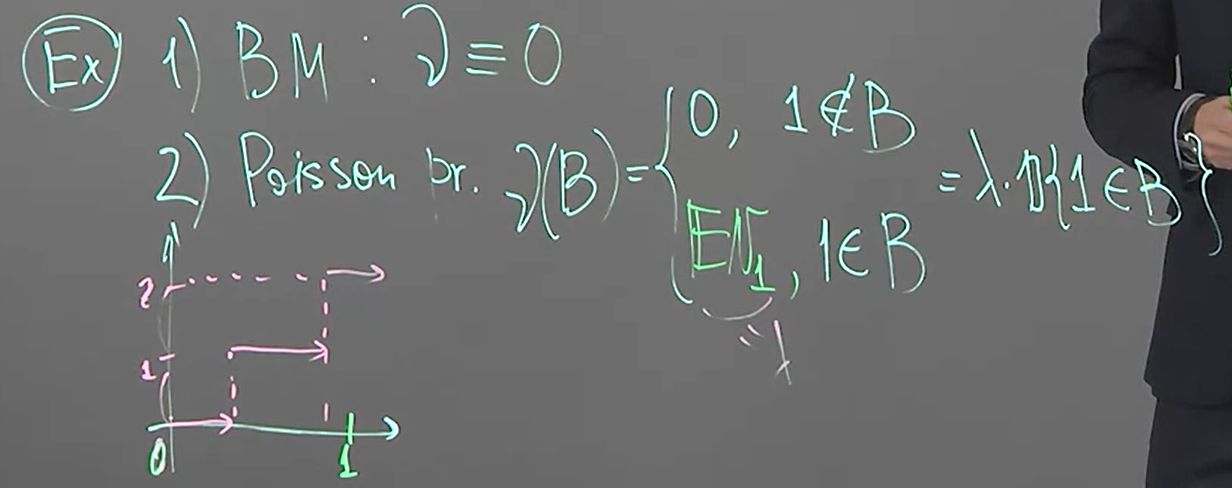 Ex 1) BM : ν ≡ 0
2) Poisson pr. ν(B) = { 0, 1 ∉ B
EN₁, 1 ∈ B = λ·𝟙{1 ∈ B}
= λ
2
1
0 1